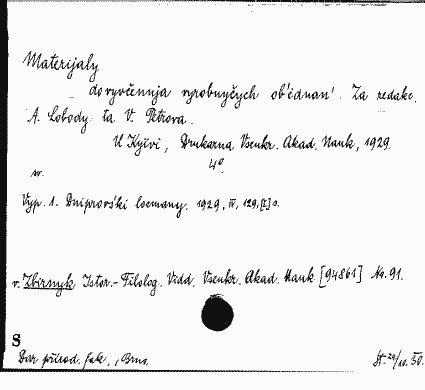 Materijaly
do vyvčennja vyrobnyčych ob'ednań. Za redakc.
A. Lobody ta V. Petrova.
U Kyjivi, Drukarna Vseukr. Akad. Nauk, 1929.
4°.
sv.
Vyp. 1. Dniprovśki locmany. 1929, IV, 129, [2] s.
v. Zbirnyk Istor.-Filolog. Vidd. Vseukr. Akad. Nauk [94861] No. 91.
S
Dar přírod. fak., Brno.
St-24/10.50.